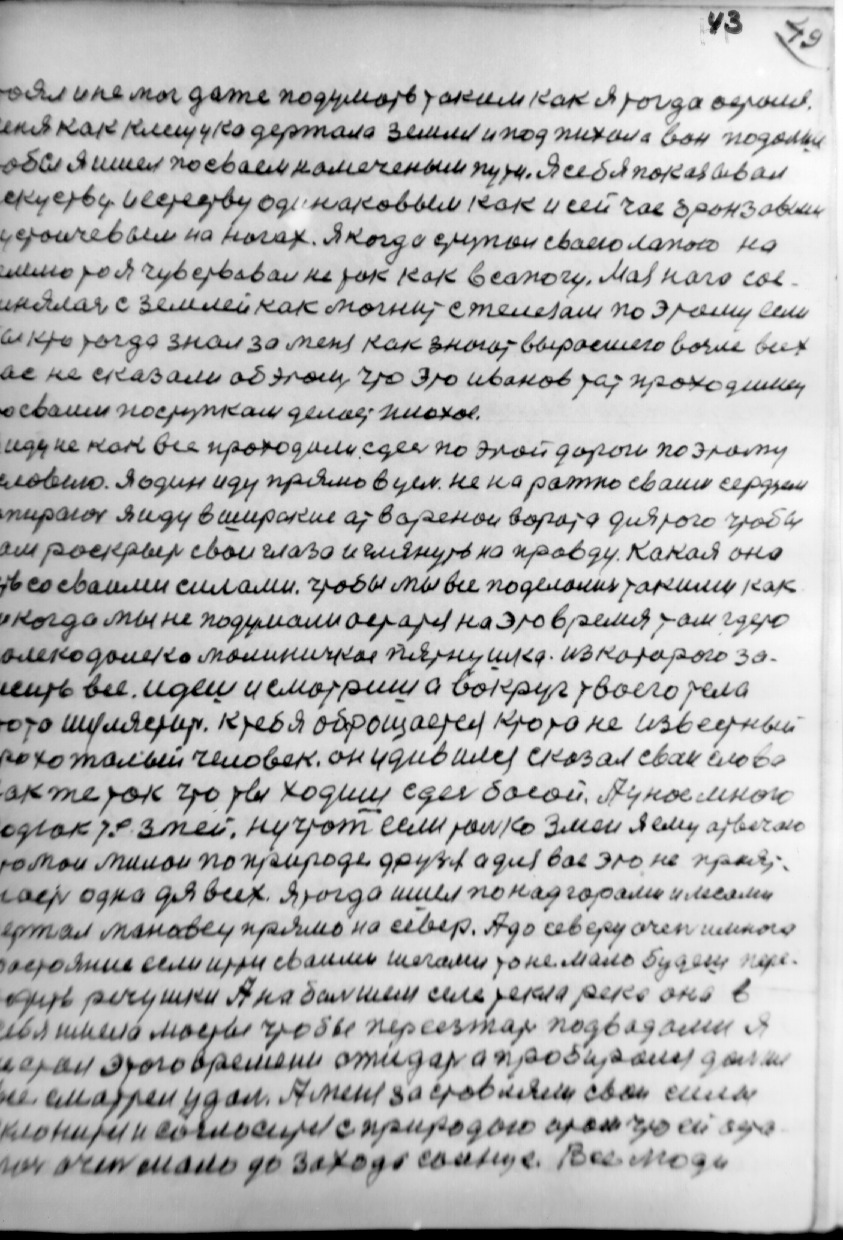 43 49
тоял и не мог даже подумать таким как я тогда
еня как клещука держала земля и под пихала вон
обы я ишел по сваем намеченым пути. Я себя показывал
скуству и еству одинаковым как и сей час
устоичевым на ногах. Я когда ступом сваею лапою на
емлю то я чувствовал не так как в сапогу. Моя нога сое-
инялая с землей как могнит с железам по этому если
ы кто тогда знал за меня как знают выросшего возле всех
ас не сказали об этом, что это иванов тат
о сваим поступкам делает плохое.
иду не как все проходили сдес по этой дороги по этому
словило. Я один иду прямо в цел. не на
я иду в широкие ат вареной ворота для того чтобы
ам роскрыт свои глаза и глянуть на правду. Какая она
ть со сваими силами. чтобы мы все поделались такими как
и когда мы не подумали на это время там где то
алеко далеко молиничкое пятнушка. из каторого за-
исить все. идеш и смотриш а вокруг твоего тела
кто та К тебя обращается кто та не известный
рохожалый человек. он удивился сказал сваи слова
ак же так что ты ходиш сдес босой. А у нас много
змей. ну что ж если только змеи я ему отвечаю
то мои милои по природе друзя а для вас это не прият.
одна для всех. я тогда ишел по над горами и лесами
ержал прямо на север. А до северу очен имного
растояние если итти сваими шегами то не мало будеш пере-
одить речушки А на балшем селе текла река она в
себя имела мосты чтобы переезжат подводами Я
этого времени ожидат а пробирался далше
не смотрел удал. А меня заставляли сваи силы
клонится и согласится с природаю
очен мало до захода солнце. Все люди